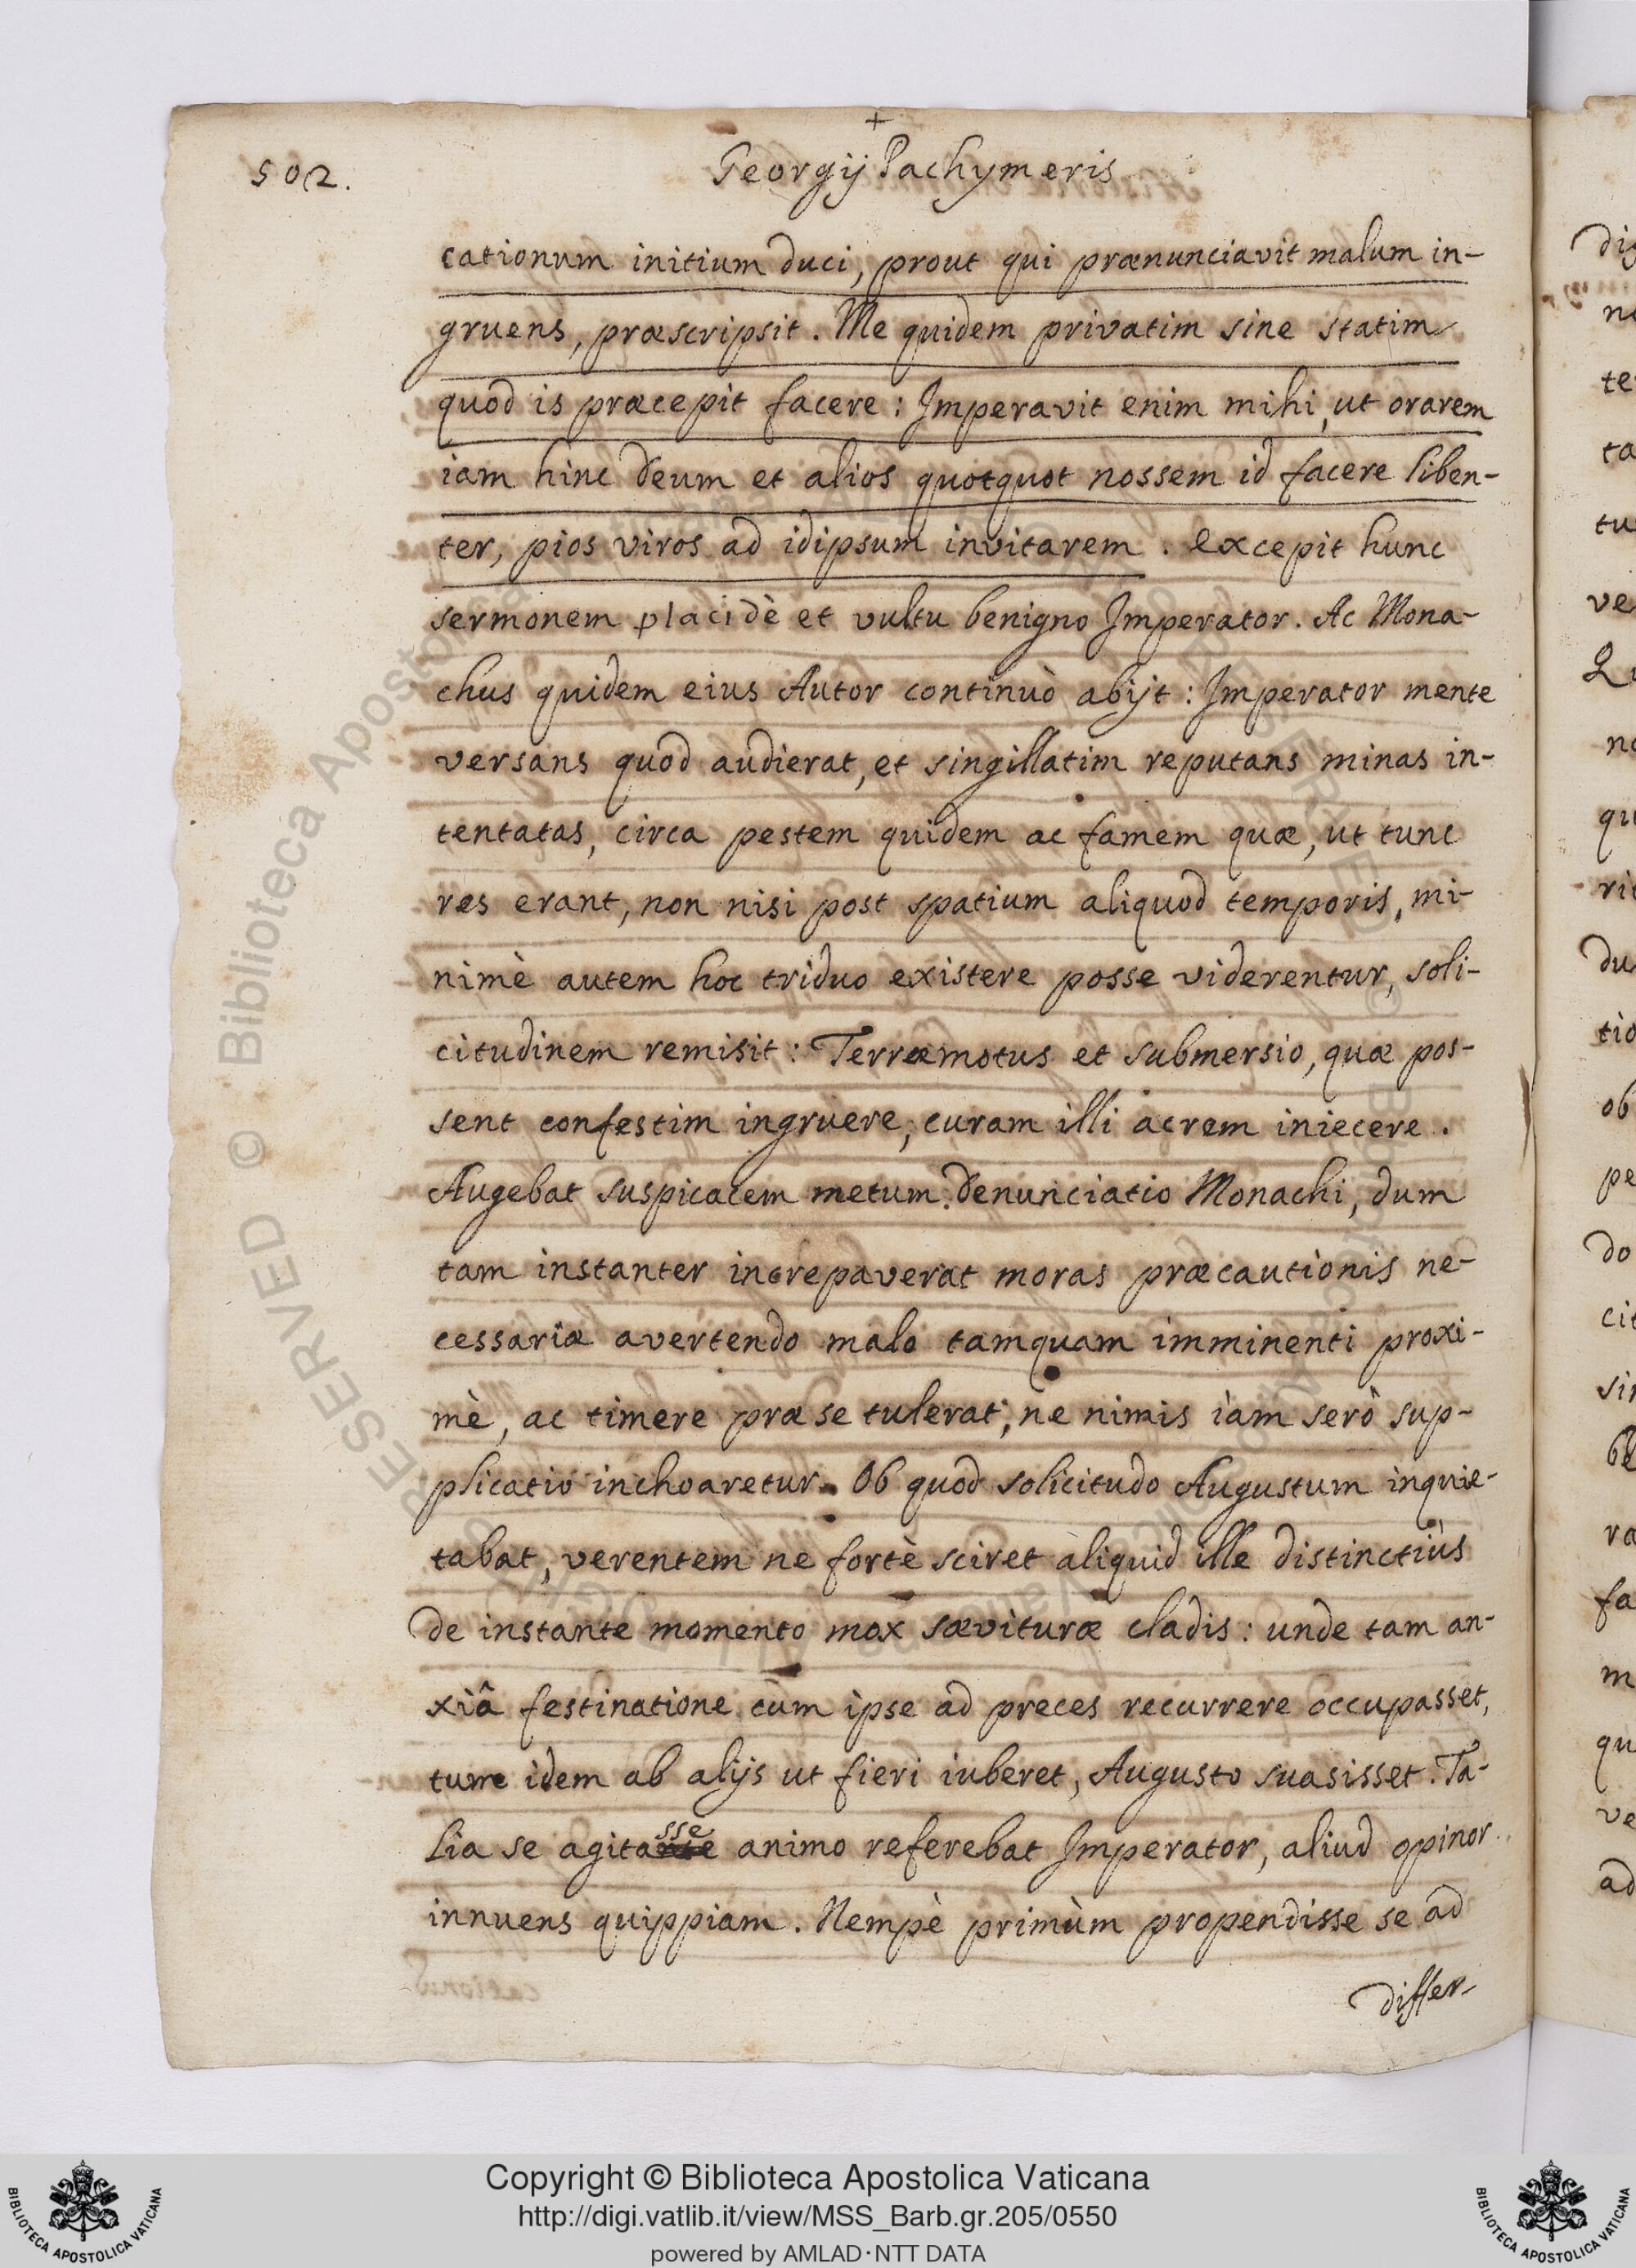 +
502. Georgij Pachymeris
cationum initium duci, prout qui prænunciavit malum in-
gruens, præscripsit. Me quidem privatim sine statim
quod is præcepit facere: Imperavit enim mihi, ut orarem
iam hinc Deum et alios quotquot nossem id facere liben-
ter, pios viros ad idipsum invitarem. Excepit hunc
sermonem placidè et vultu benigno Imperator. Ac Mona-
chus quidem eius Autor continuò abijt: Imperator mente
versans quod audierat, et singillatim reputans minas in-
tentatas, circa pestem quidem ac famem quæ, ut tunc
res erant, non nisi post spatium aliquod temporis, mi-
nimè autem hoc triduo existere posse viderentur, soli-
citudinem remisit: Terræmotus et submersio, quæ pos-
sent confestim ingruere, curam illi acrem iniecere.
Augebat suspicacem metum Denunciatio Monachi, dum
tam instanter increpaverat moras præcautionis ne-
cessariæ avertendo malo tamquam imminenti proxi-
mè, ac timere præ se tulerat, ne nimis iam serò sup-
plicatio inchoaretur. Ob quod solicitudo Augustum inquie-
tabat, verentem ne fortè sciret aliquid ille distinctiùs
de instante momento mox sævituræ cladis: unde tam an-
xiâ festinatione cùm ipse ad preces recurrere occupasset,
tum idem ab alijs ut fieri iuberet, Augusto suasisset. Ta-
lia se agitasse animo referebat Imperator, aliud opinor
innuens quippiam. Nempè primùm propendisse se ad
differ-
Copyright © Biblioteca Apostolica Vaticana
http://digi.vatlib.it/view/MSS_Barb.gr.205/0550
powered by AMLAD·NTT DATA
BIBLIOTECA APOSTOLICA VATICANA
BIBLIOTECA APOSTOLICA VATICANA